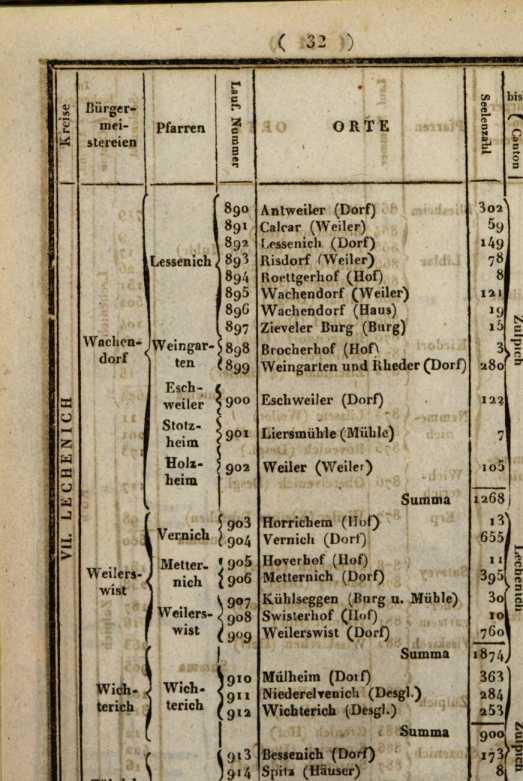 ( 32 )
Kreise
Bürger-
mei-
stereien
Pfarren
Lauf. Nummer
ORTE
Seelenzahl
bis
Canton
VII. LECHENICH
Wachen-
dorf
Lessenich
890 Antweiler (Dorf) 302
891 Calcar (Weiler) 59
892 Lessenich (Dorf) 149
893 Risdorf (Weiler) 78
894 Roettgerhof (Hof) 8
895 Wachendorf (Weiler) 121
896 Wachendorf (Haus) 19
897 Zieveler Burg (Burg) 15
Weingar-
ten
898 Brocherhof (Hof) 3
899 Weingarten und Rheder (Dorf) 280
Esch-
weiler
900 Eschweiler (Dorf) 122
Stotz-
heim
901 Liersmühle (Mühle) 7
Holz-
heim
902 Weiler (Weiler) 105
Summa 1268
Zulpich
Weilers-
wist
Vernich
903 Horrichem (Hof) 13
904 Vernich (Dorf) 655
Metter-
nich
905 Hoverhof (Hof) 11
906 Metternich (Dorf) 395
Weilers-
wist
907 Kühlseggen (Burg u. Mühle) 30
908 Swisterhof (Hof) 10
909 Weilerswist (Dorf) 760
Summa 1874
Lechenich
Wich-
terich
Wich-
terich
910 Mülheim (Dorf) 363
911 Niederelvenich (Desgl.) 284
912 Wichterich (Desgl.) 253
Summa 900
913 Bessenich (Dorf) 173
914 Spitz (Häuser) 8
Zulpich